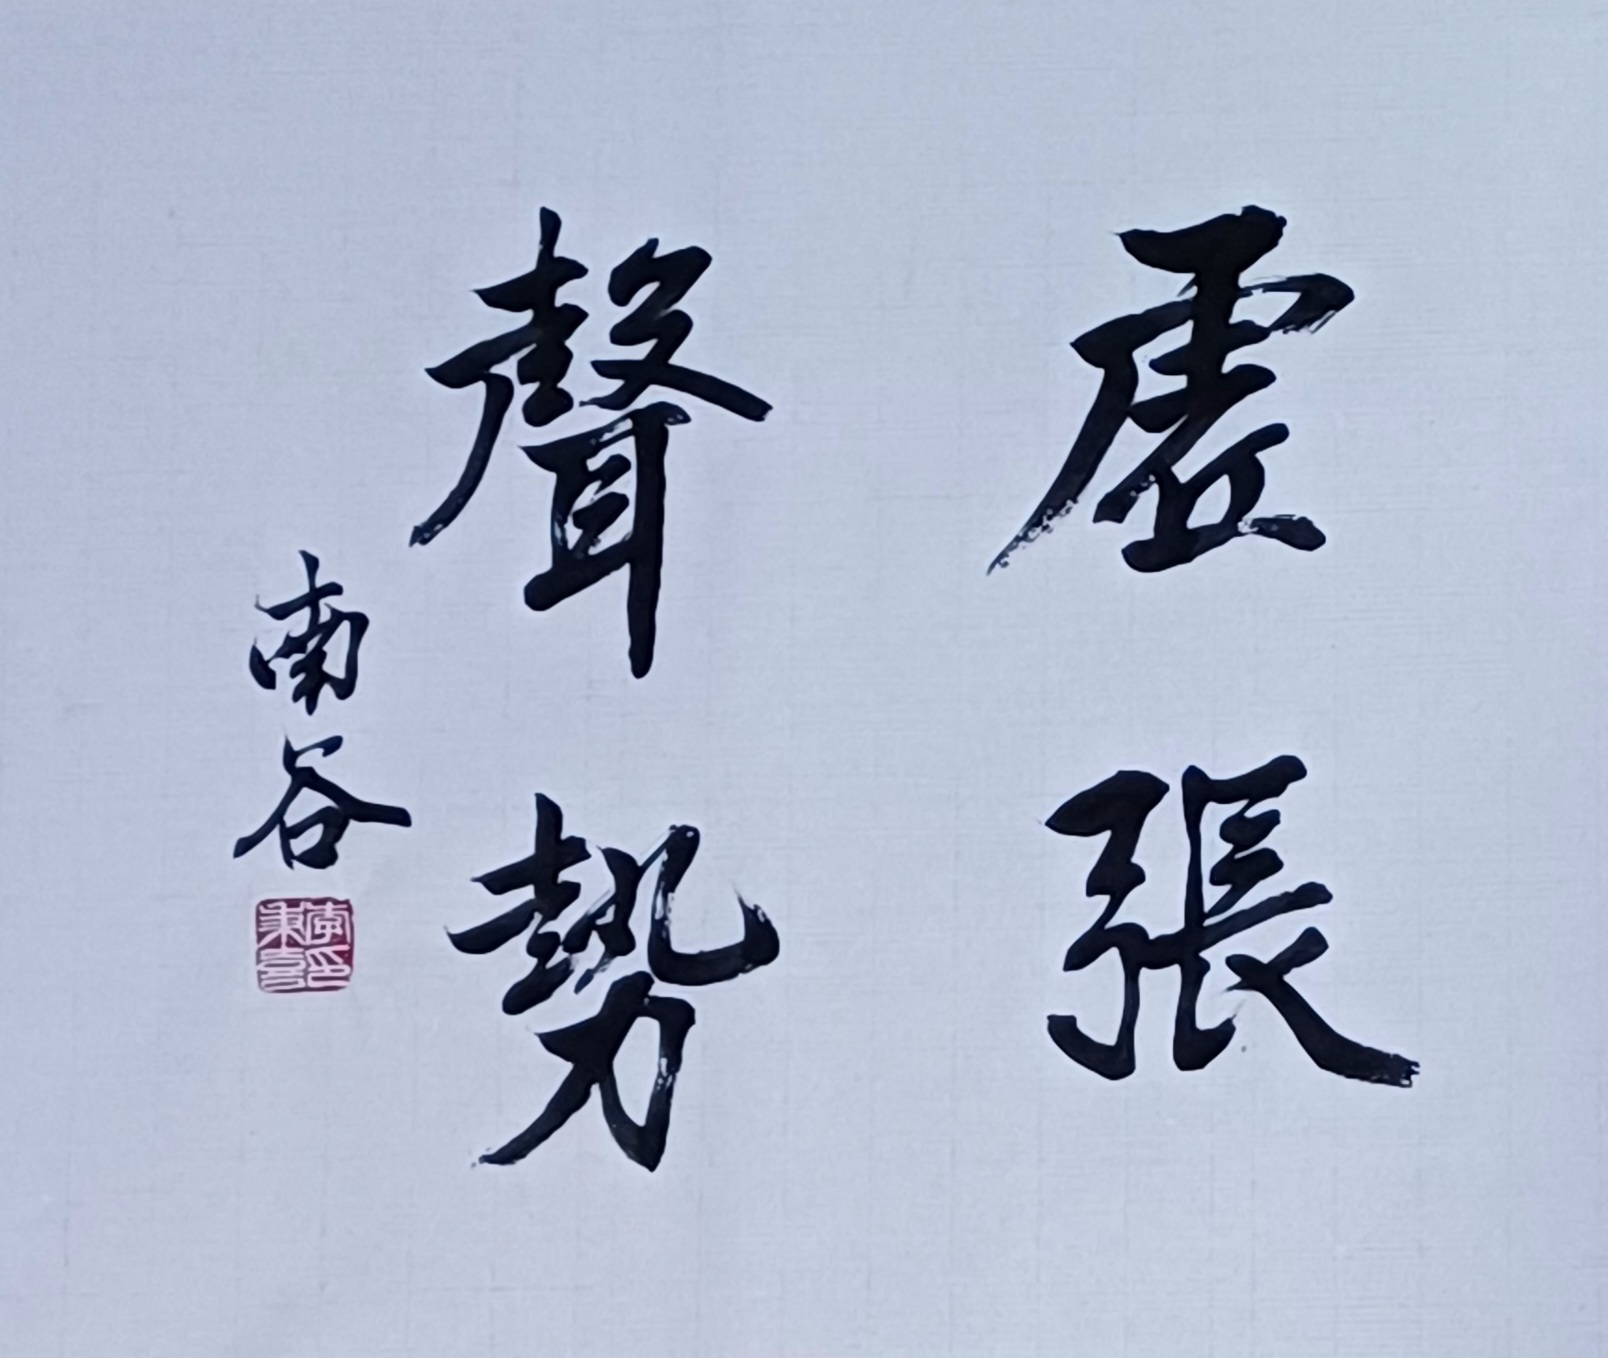 虛張
聲勢
南谷